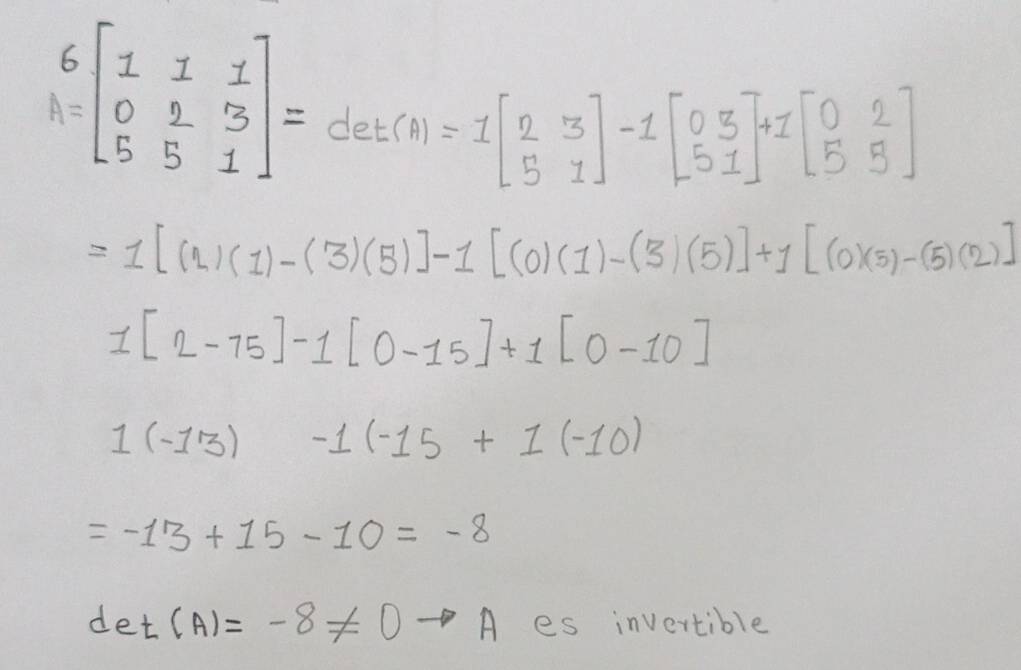 6
A= [1 1 1; 0 2 3; 5 5 1] = det(A) = 1[2 3; 5 1] -1[0 3; 5 1]+1[0 2; 5 5]
= 1[(2)(1)-(3)(5)]-1[(0)(1)-(3)(5)]+1[(0)(5)-(5)(2)]
1[2-15]-1[0-15]+1[0-10]
1(-13) -1(-15 + 1(-10)
= -13+15-10= -8
det(A)= -8≠0→ A es invertible